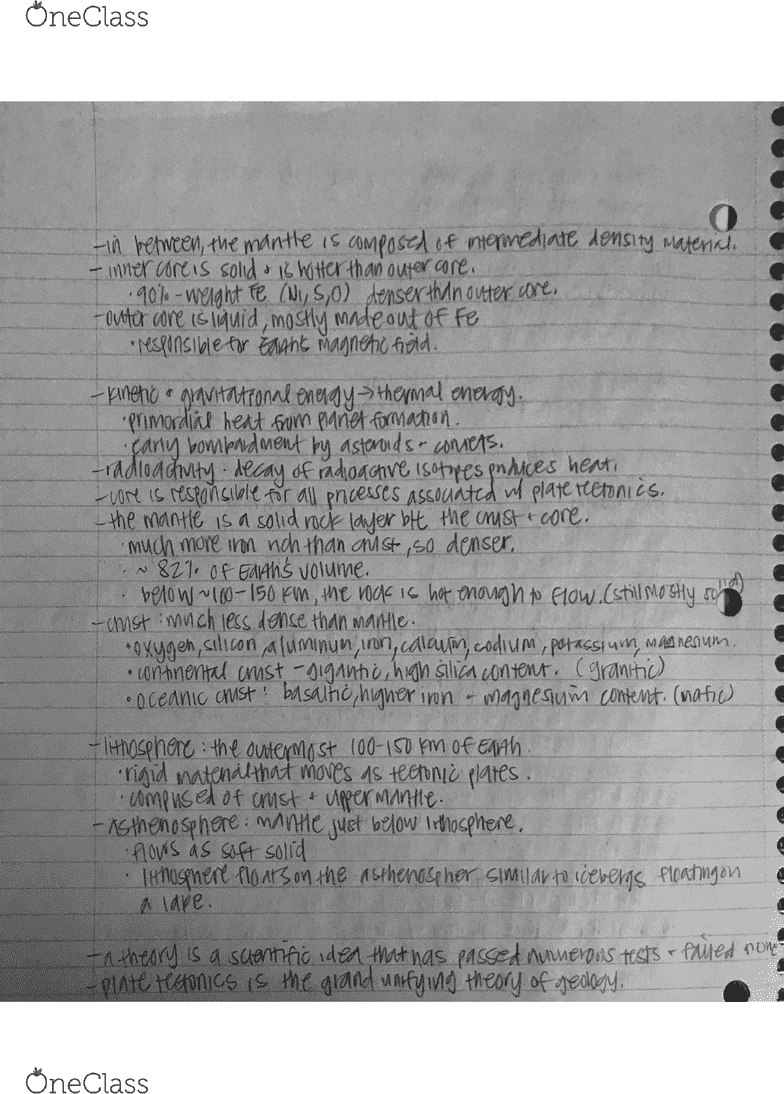 OneClass
-in between, the mantle is composed of intermediate density material.
-inner core is solid + is hotter than outer core.
·90%-weight Fe (Ni, S, O) denser than outer core.
-outer core is liquid, mostly made out of Fe
·responsible for Earth's magnetic field.
-kinetic + gravitational energy → thermal energy.
·primordial heat from planet formation.
·early bombardment by asteroids + comets.
-radioactivity · decay of radioactive isotopes produces heat.
-core is responsible for all processes associated w/ plate tectonics.
-the mantle is a solid rock layer btt the crust + core.
·much more iron rich than crust, so denser.
·~ 82% of Earth's volume.
· below ~100-150 km, the rock is hot enough to flow. (still mostly solid)
-crust : much less dense than mantle.
·oxygen, silicon, aluminum, iron, calcium, sodium, potassium, magnesium.
·continental crust - gigantic, high silica content. (granitic)
·oceanic crust : basaltic, higher iron + magnesium content. (mafic)
-lithosphere : the outermost 100-150 km of Earth.
·rigid material that moves as tectonic plates.
·composed of crust + upper mantle.
-Asthenosphere : mantle just below lithosphere.
·flows as soft solid
· lithosphere floats on the asthenospher similar to icebergs floating on
a lake.
-A theory is a scientific idea that has passed numerous tests + failed none
-plate tectonics is the grand unifying theory of geology.
OneClass